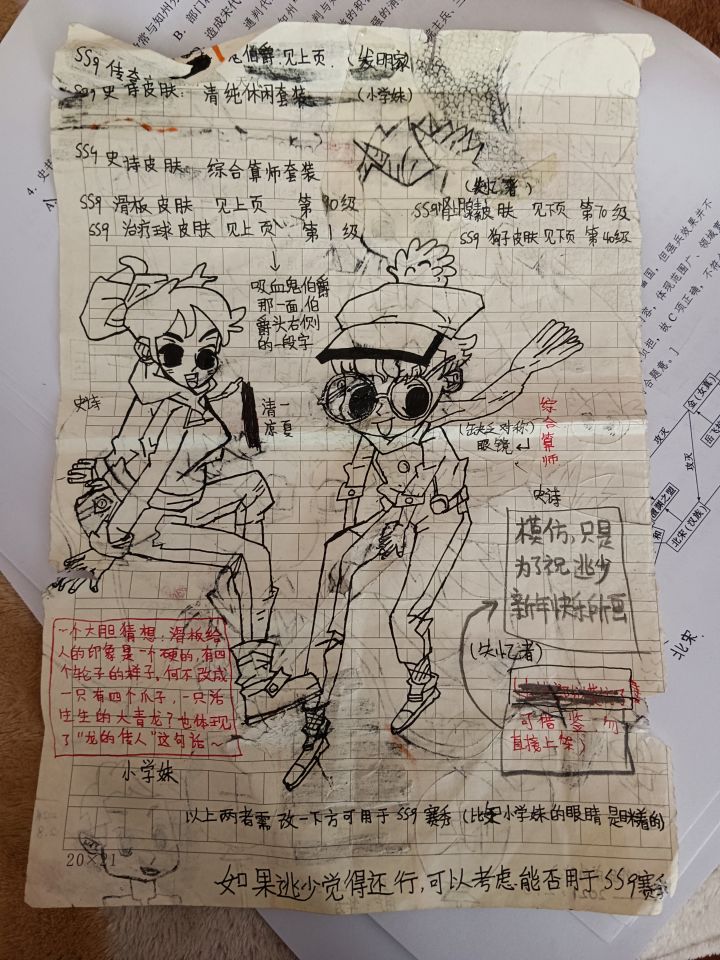 SS9 传奇 伯爵.见上页.(发明家)
SS9 史诗皮肤: 清纯休闲套装 (小学妹)
SS9 史诗皮肤: 综合算师套装
(失忆者)
SS9 滑板皮肤 见上页 第70级
SS9 肾上腺素皮肤 见下页 第70级
SS9 治疗球皮肤 见上页 第1级
SS9 狗子皮肤 见下页 第40级
吸血鬼伯爵
那一面,伯
爵头右侧
的一段字
史诗
清一
凉夏
眼镜
综合算师
史诗
模仿,只是
为了祝逃少
新年快乐所画
(失忆者)
可借鉴,勿
直接上架)
一个大胆猜想,滑板给
人的印象是一个硬的,有四
个轮子的样子,何不改成
一只有四个爪子,一只活
生生的大青龙?也体现
了“龙的传人”这句话~
小学妹
以上两者需改一下方可用于SS9赛季(比如小学妹的眼睛是眯着的)
20×21
如果逃少觉得还行,可以考虑能否用于SS9赛季
B. 部门
造成宋代
4. 史
金(女真)
攻灭
攻灭
北宋(汉族)
北宋